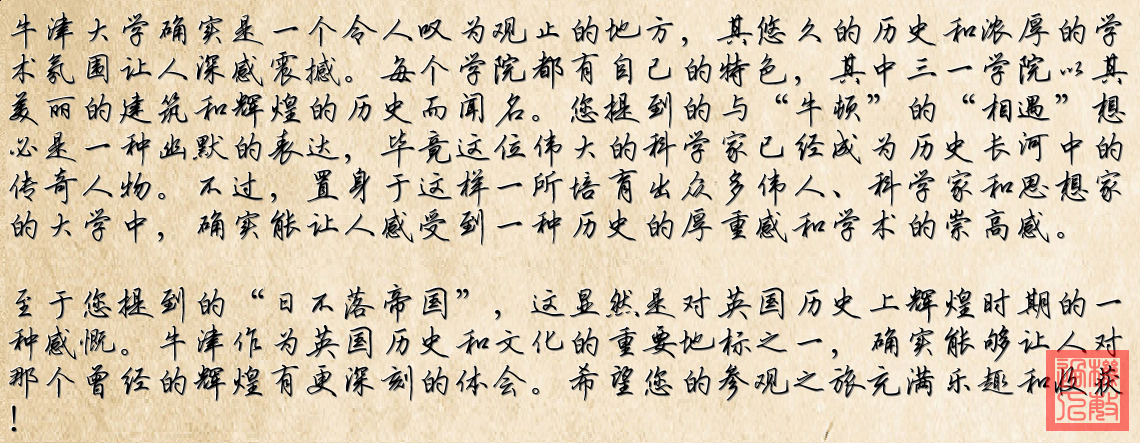 牛津大学确实是一个令人叹为观止的地方，其悠久的历史和浓厚的学
术氛围让人深感震撼。每个学院都有自己的特色，其中三一学院以其
美丽的建筑和辉煌的历史而闻名。您提到的与“牛顿”的“相遇”想
必是一种幽默的表达，毕竟这位伟大的科学家已经成为历史长河中的
传奇人物。不过，置身于这样一所培育出众多伟人、科学家和思想家
的大学中，确实能让人感受到一种历史的厚重感和学术的崇高感。
至于您提到的“日不落帝国”，这显然是对英国历史上辉煌时期的一
种感慨。牛津作为英国历史和文化的重要地标之一，确实能够让人对
那个曾经的辉煌有更深刻的体会。希望您的参观之旅充满乐趣和收获
！